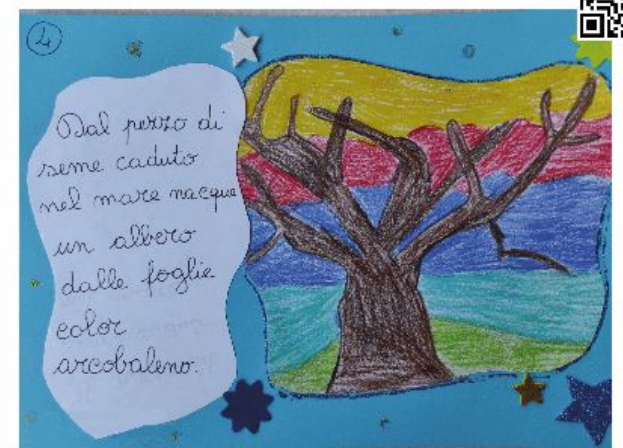 4
Dal pezzo di
seme caduto
nel mare nacque
un albero
dalle foglie
color
arcobaleno.